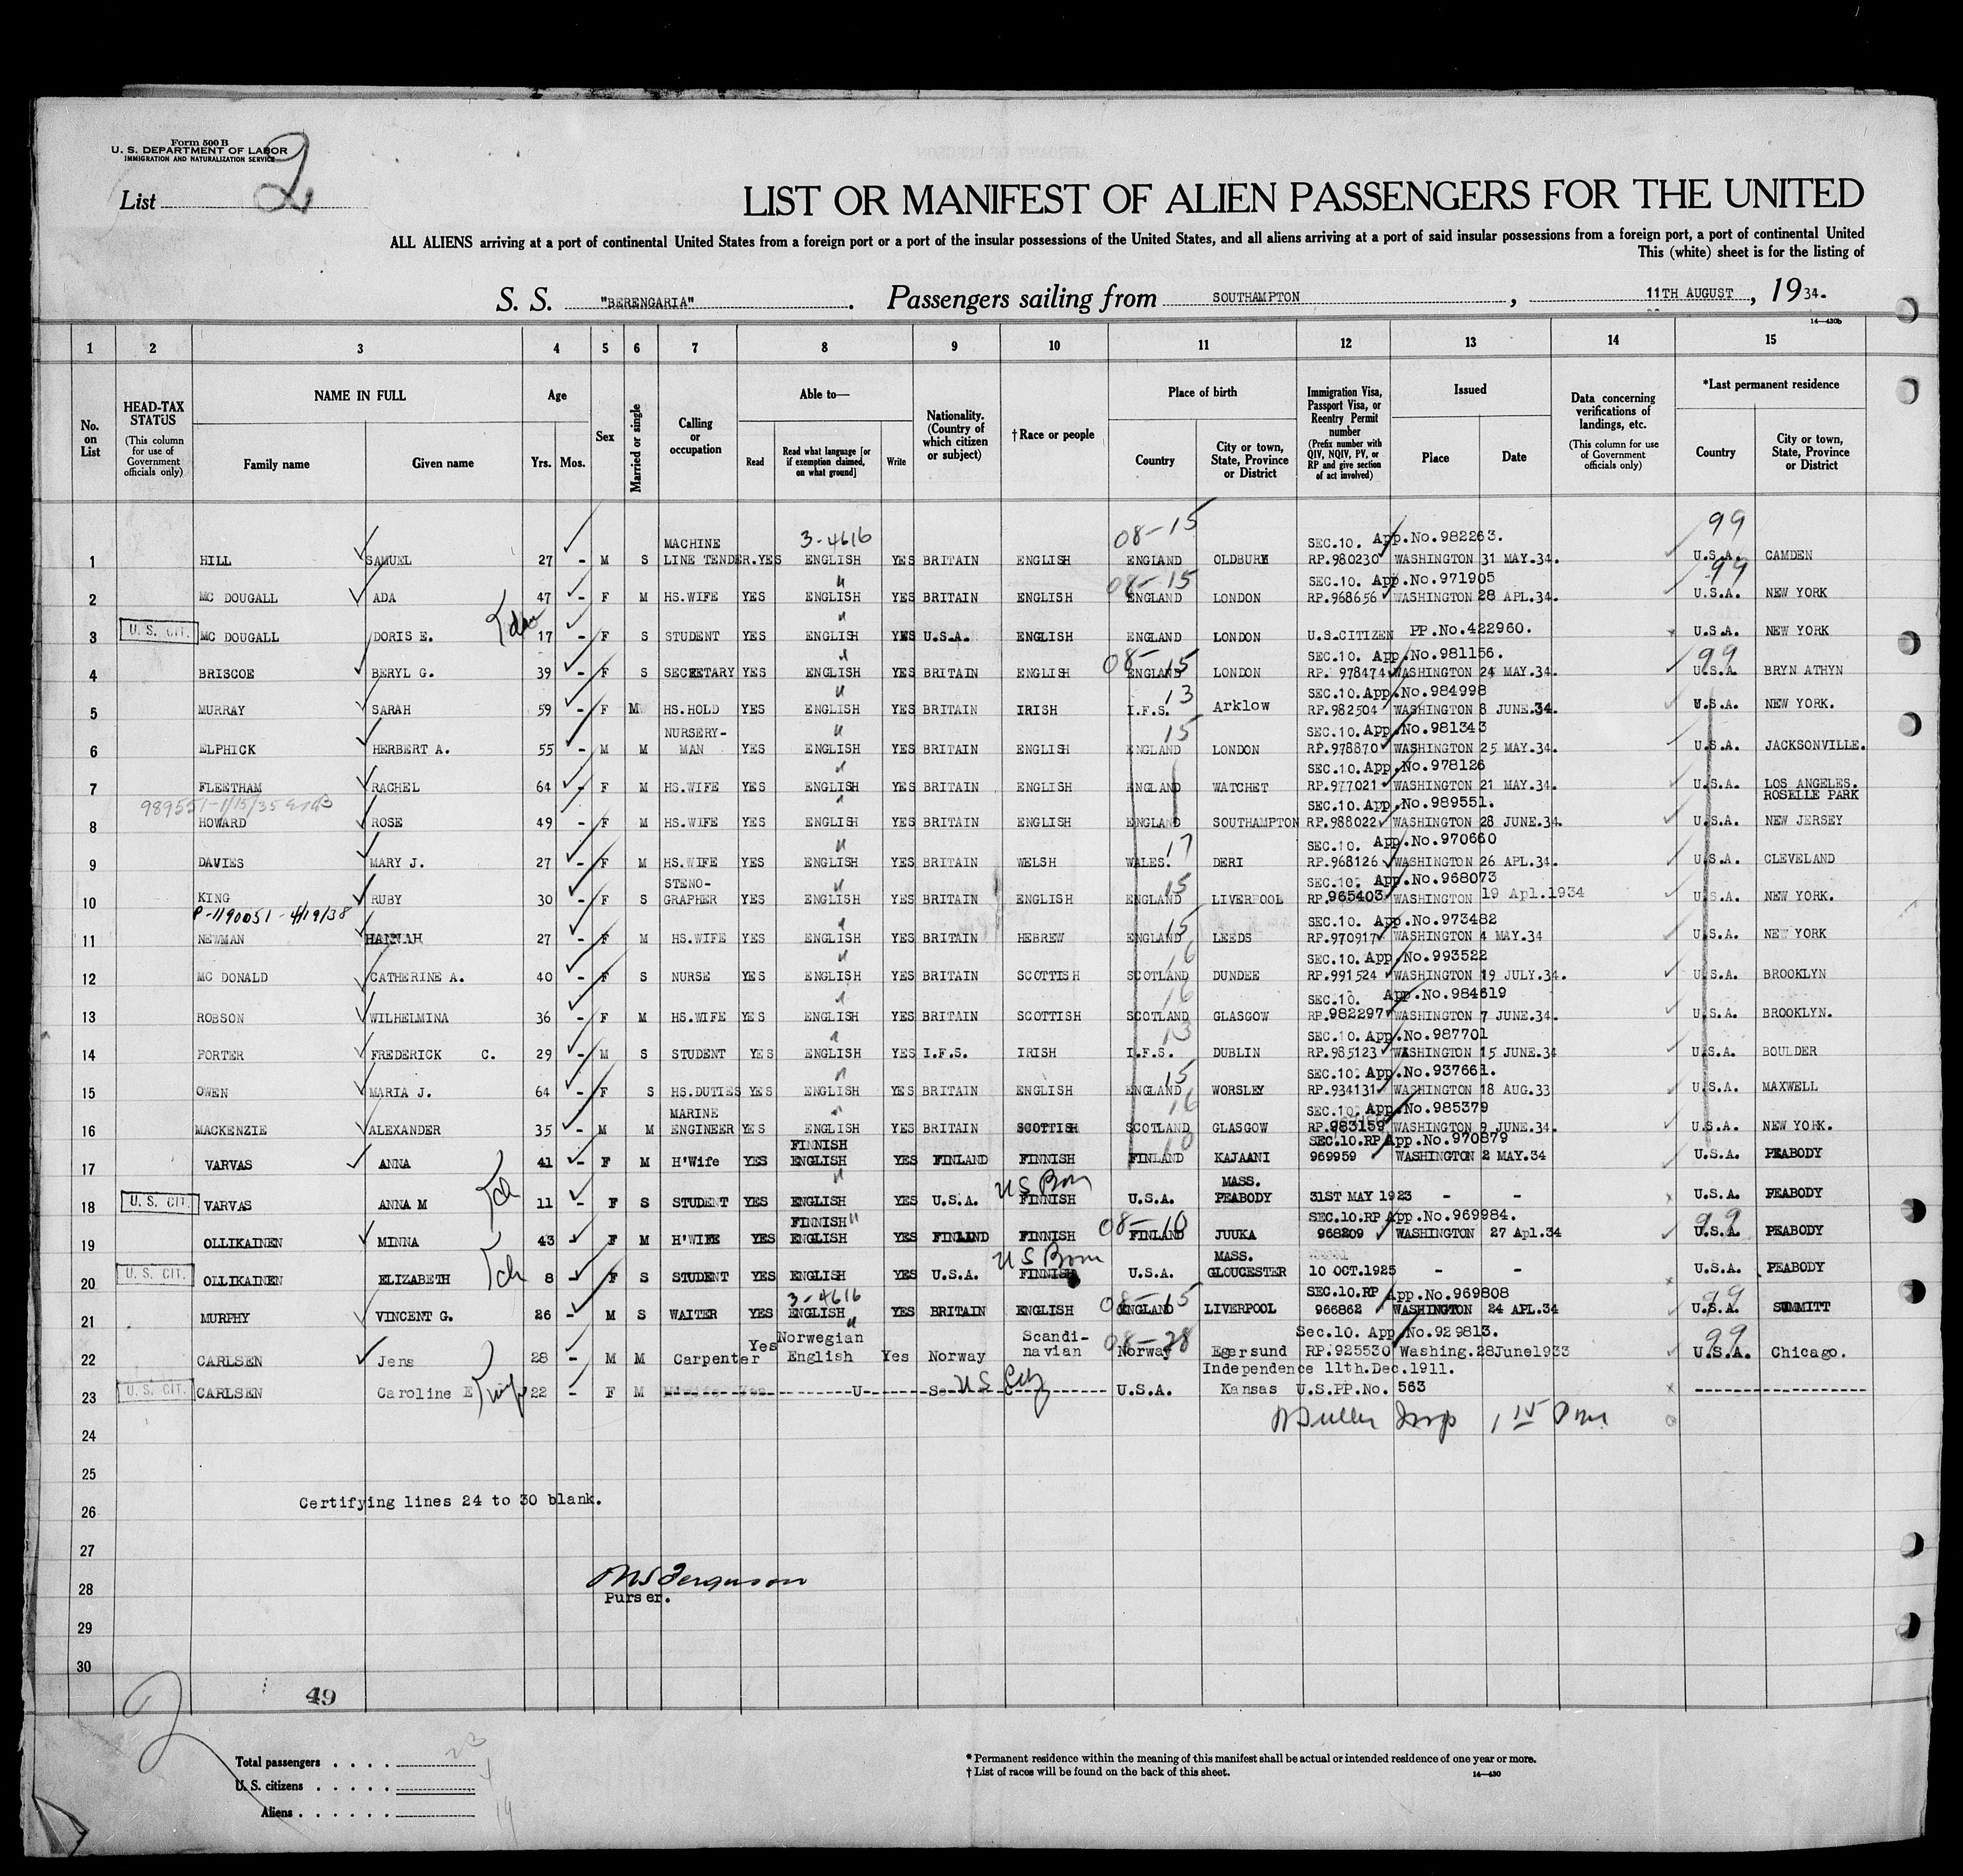 Form 500 B
U. S. DEPARTMENT OF LABOR
IMMIGRATION AND NATURALIZATION SERVICE
List 2
LIST OR MANIFEST OF ALIEN PASSENGERS FOR THE UNITED
ALL ALIENS arriving at a port of continental United States from a foreign port or a port of the insular possessions of the United States, and all aliens arriving at a port of said insular possessions from a foreign port, a port of continental United
This (white) sheet is for the listing of
S. S. "BERENGARIA". Passengers sailing from SOUTHAMPTON, 11TH AUGUST, 1934.
14—430b
1 2 3 4 5 6 7 8 9 10 11 12 13 14 15
No. on List
HEAD-TAX STATUS (This column for use of Government officials only)
NAME IN FULL Family name Given name
Age Yrs. Mos.
Sex
Married or single
Calling or occupation
Able to— Read Read what language [or if exemption claimed, on what ground] Write
Nationality. (Country of which citizen or subject)
†Race or people
Place of birth Country City or town, State, Province or District
Immigration Visa, Passport Visa, or Reentry Permit number (Prefix number with QIV, NQIV, PV, or RP and give section of act involved)
Issued Place Date
Data concerning verifications of landings, etc. (This column for use of Government officials only)
*Last permanent residence Country City or town, State, Province or District
MACHINE 3-4616 08-15 SEC.10. App.No.982263. 99
1 HILL SAMUEL 27 - M S LINE TENDER. YES ENGLISH YES BRITAIN ENGLISH ENGLAND OLDBURY RP.980230 WASHINGTON 31 MAY.34. U.S.A. CAMDEN
" 08-15 SEC.10. App.No.971905 99
2 MC DOUGALL ADA 47 - F M HS.WIFE YES ENGLISH YES BRITAIN ENGLISH ENGLAND LONDON RP.968656 WASHINGTON 28 APL.34. U.S.A. NEW YORK
3 U. S. CIT. MC DOUGALL DORIS E. 17 - F S STUDENT YES ENGLISH YES U.S.A. ENGLISH ENGLAND LONDON U.S.CITIZEN PP.No.422960. U.S.A. NEW YORK
" 08-15 SEC.10. App.No.981156. 99
4 BRISCOE BERYL G. 39 - F S SECRETARY YES ENGLISH YES BRITAIN ENGLISH ENGLAND LONDON RP. 978474 WASHINGTON 24 MAY.34. U.S.A. BRYN ATHYN
" 13 SEC.10. App.No.984998
5 MURRAY SARAH 59 - F M HS.HOLD YES ENGLISH YES BRITAIN IRISH I.F.S. Arklow RP.982504 WASHINGTON 8 JUNE.34. U.S.A. NEW YORK.
NURSERY- " 15 SEC.10. App.No.981343
6 ELPHICK HERBERT A. 55 - M M MAN YES ENGLISH YES BRITAIN ENGLISH ENGLAND LONDON RP.978870 WASHINGTON 25 MAY.34. U.S.A. JACKSONVILLE.
" SEC.10. App.No.978126
7 FLEETHAM RACHEL 64 - F M HS.WIFE YES ENGLISH YES BRITAIN ENGLISH ENGLAND WATCHET RP.977021 WASHINGTON 21 MAY.34. U.S.A. LOS ANGELES.
989551-1/15/35 " SEC.10. App.No.989551. ROSELLE PARK
8 HOWARD ROSE 49 - F M HS.WIFE YES ENGLISH YES BRITAIN ENGLISH ENGLAND SOUTHAMPTON RP.988022 WASHINGTON 28 JUNE.34. U.S.A. NEW JERSEY
" 17 SEC.10. App.No.970660
9 DAVIES MARY J. 27 - F M HS.WIFE YES ENGLISH YES BRITAIN WELSH WALES. DERI RP.968126 WASHINGTON 26 APL.34. U.S.A. CLEVELAND
STENO- " 15 SEC.10. App.No.968073
10 KING RUBY 30 - F S GRAPHER YES ENGLISH YES BRITAIN ENGLISH ENGLAND LIVERPOOL RP.965403 WASHINGTON 19 Apl.1934 U.S.A. NEW YORK.
P-1190051-4/19/38 " 15 SEC.10. App.No.973482
11 NEWMAN HANNAH 27 - F M HS.WIFE YES ENGLISH YES BRITAIN HEBREW ENGLAND LEEDS RP.970917 WASHINGTON 4 MAY.34 U.S.A. NEW YORK
" 16 SEC.10. App.No.993522
12 MC DONALD CATHERINE A. 40 - F S NURSE YES ENGLISH YES BRITAIN SCOTTISH SCOTLAND DUNDEE RP.991524 WASHINGTON 19 JULY.34. U.S.A. BROOKLYN
" 16 SEC.10. App.No.984619
13 ROBSON WILHELMINA 36 - F M HS.WIFE YES ENGLISH YES BRITAIN SCOTTISH SCOTLAND GLASGOW RP.982297 WASHINGTON 7 JUNE.34. U.S.A. BROOKLYN.
" 13 SEC.10. App.No.987701
14 PORTER FREDERICK C. 29 - M S STUDENT YES ENGLISH YES I.F.S. IRISH I.F.S. DUBLIN RP.985123 WASHINGTON 15 JUNE.34 U.S.A. BOULDER
" 15 SEC.10. App.No.937661.
15 OWEN MARIA J. 64 - F S HS.DUTIES YES ENGLISH YES BRITAIN ENGLISH ENGLAND WORSLEY RP.934131 WASHINGTON 18 AUG.33 U.S.A. MAXWELL
MARINE " 16 SEC.10. App.No.985379
16 MACKENZIE ALEXANDER 35 - M M ENGINEER YES ENGLISH YES BRITAIN SCOTTISH SCOTLAND GLASGOW RP.983159 WASHINGTON 9 JUNE.34. U.S.A. NEW YORK.
FINNISH 10 SEC.10.RP App.No.970879
17 VARVAS ANNA 41 - F M H'Wife YES ENGLISH YES FINLAND FINNISH FINLAND KAJAANI 969959 WASHINGTON 2 MAY.34 U.S.A. PEABODY
" US Born MASS.
18 U. S. CIT. VARVAS ANNA M 11 - F S STUDENT YES ENGLISH YES U.S.A. FINNISH U.S.A. PEABODY 31ST MAY 1923 - - U.S.A. PEABODY
FINNISH " 08-10 SEC.10.RP App.No.969984. 99
19 OLLIKAINEN MINNA 43 - F M H'WIFE YES ENGLISH YES FINLAND FINNISH FINLAND JUUKA 968209 WASHINGTON 27 Apl.34 U.S.A. PEABODY
US Born MASS.
20 U. S. CIT. OLLIKAINEN ELIZABETH 8 - F S STUDENT YES ENGLISH YES U.S.A. FINNISH U.S.A. GLOUCESTER 10 OCT.1925 - - U.S.A. PEABODY
3-4616 08-15 SEC.10.RP App.No.969808 99
21 MURPHY VINCENT G. 26 - M S WAITER YES ENGLISH YES BRITAIN ENGLISH ENGLAND LIVERPOOL 966862 WASHINGTON 24 APL.34 U.S.A. SUMMITT
Yes Norwegian " Scandi- 08-28 Sec.10. App.No.929813. 99
22 CARLSEN Jens 28 - M M Carpenter English Yes Norway navian Norway Egersund RP.925530 Washing. 28June1933 U.S.A. Chicago.
Independence 11th.Dec.1911.
23 U. S. CIT. CARLSEN Caroline E wife 22 - F M U S US Cit U.S.A. Kansas U.S.PP.No. 563
Insp 1 15 Pm
24
25
Certifying lines 24 to 30 blank.
26
27
28
Ferguson
Purser.
29
30
49
Total passengers . . . . 23
U. S. citizens . . . . .
Aliens . . . . . . 19
* Permanent residence within the meaning of this manifest shall be actual or intended residence of one year or more.
† List of races will be found on the back of this sheet.
14—430